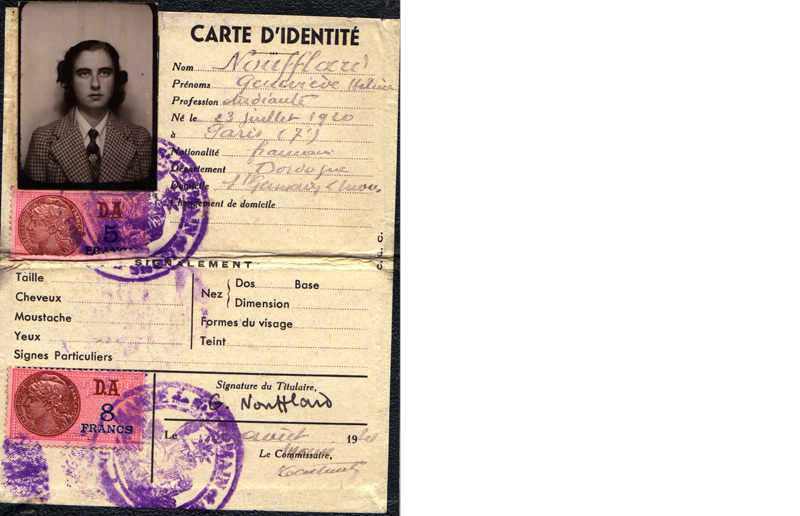 CARTE D'IDENTITÉ
Nom Noufflard
Prénoms Geneviève Hélène
Profession étudiante
Né le 23 juillet 1920
à Paris (7e)
Nationalité
Département Dordogne
Domicile St Germain
Changement de domicile
C. L. C.
DA
5
FRANCS
SIGNALEMENT
Taille
Cheveux
Moustache
Yeux
Signes Particuliers
Nez
Dos Base
Dimension
Formes du visage
Teint
DA
8
FRANCS
Signature du Titulaire,
G. Noufflard
Le août 19
Le Commissaire,